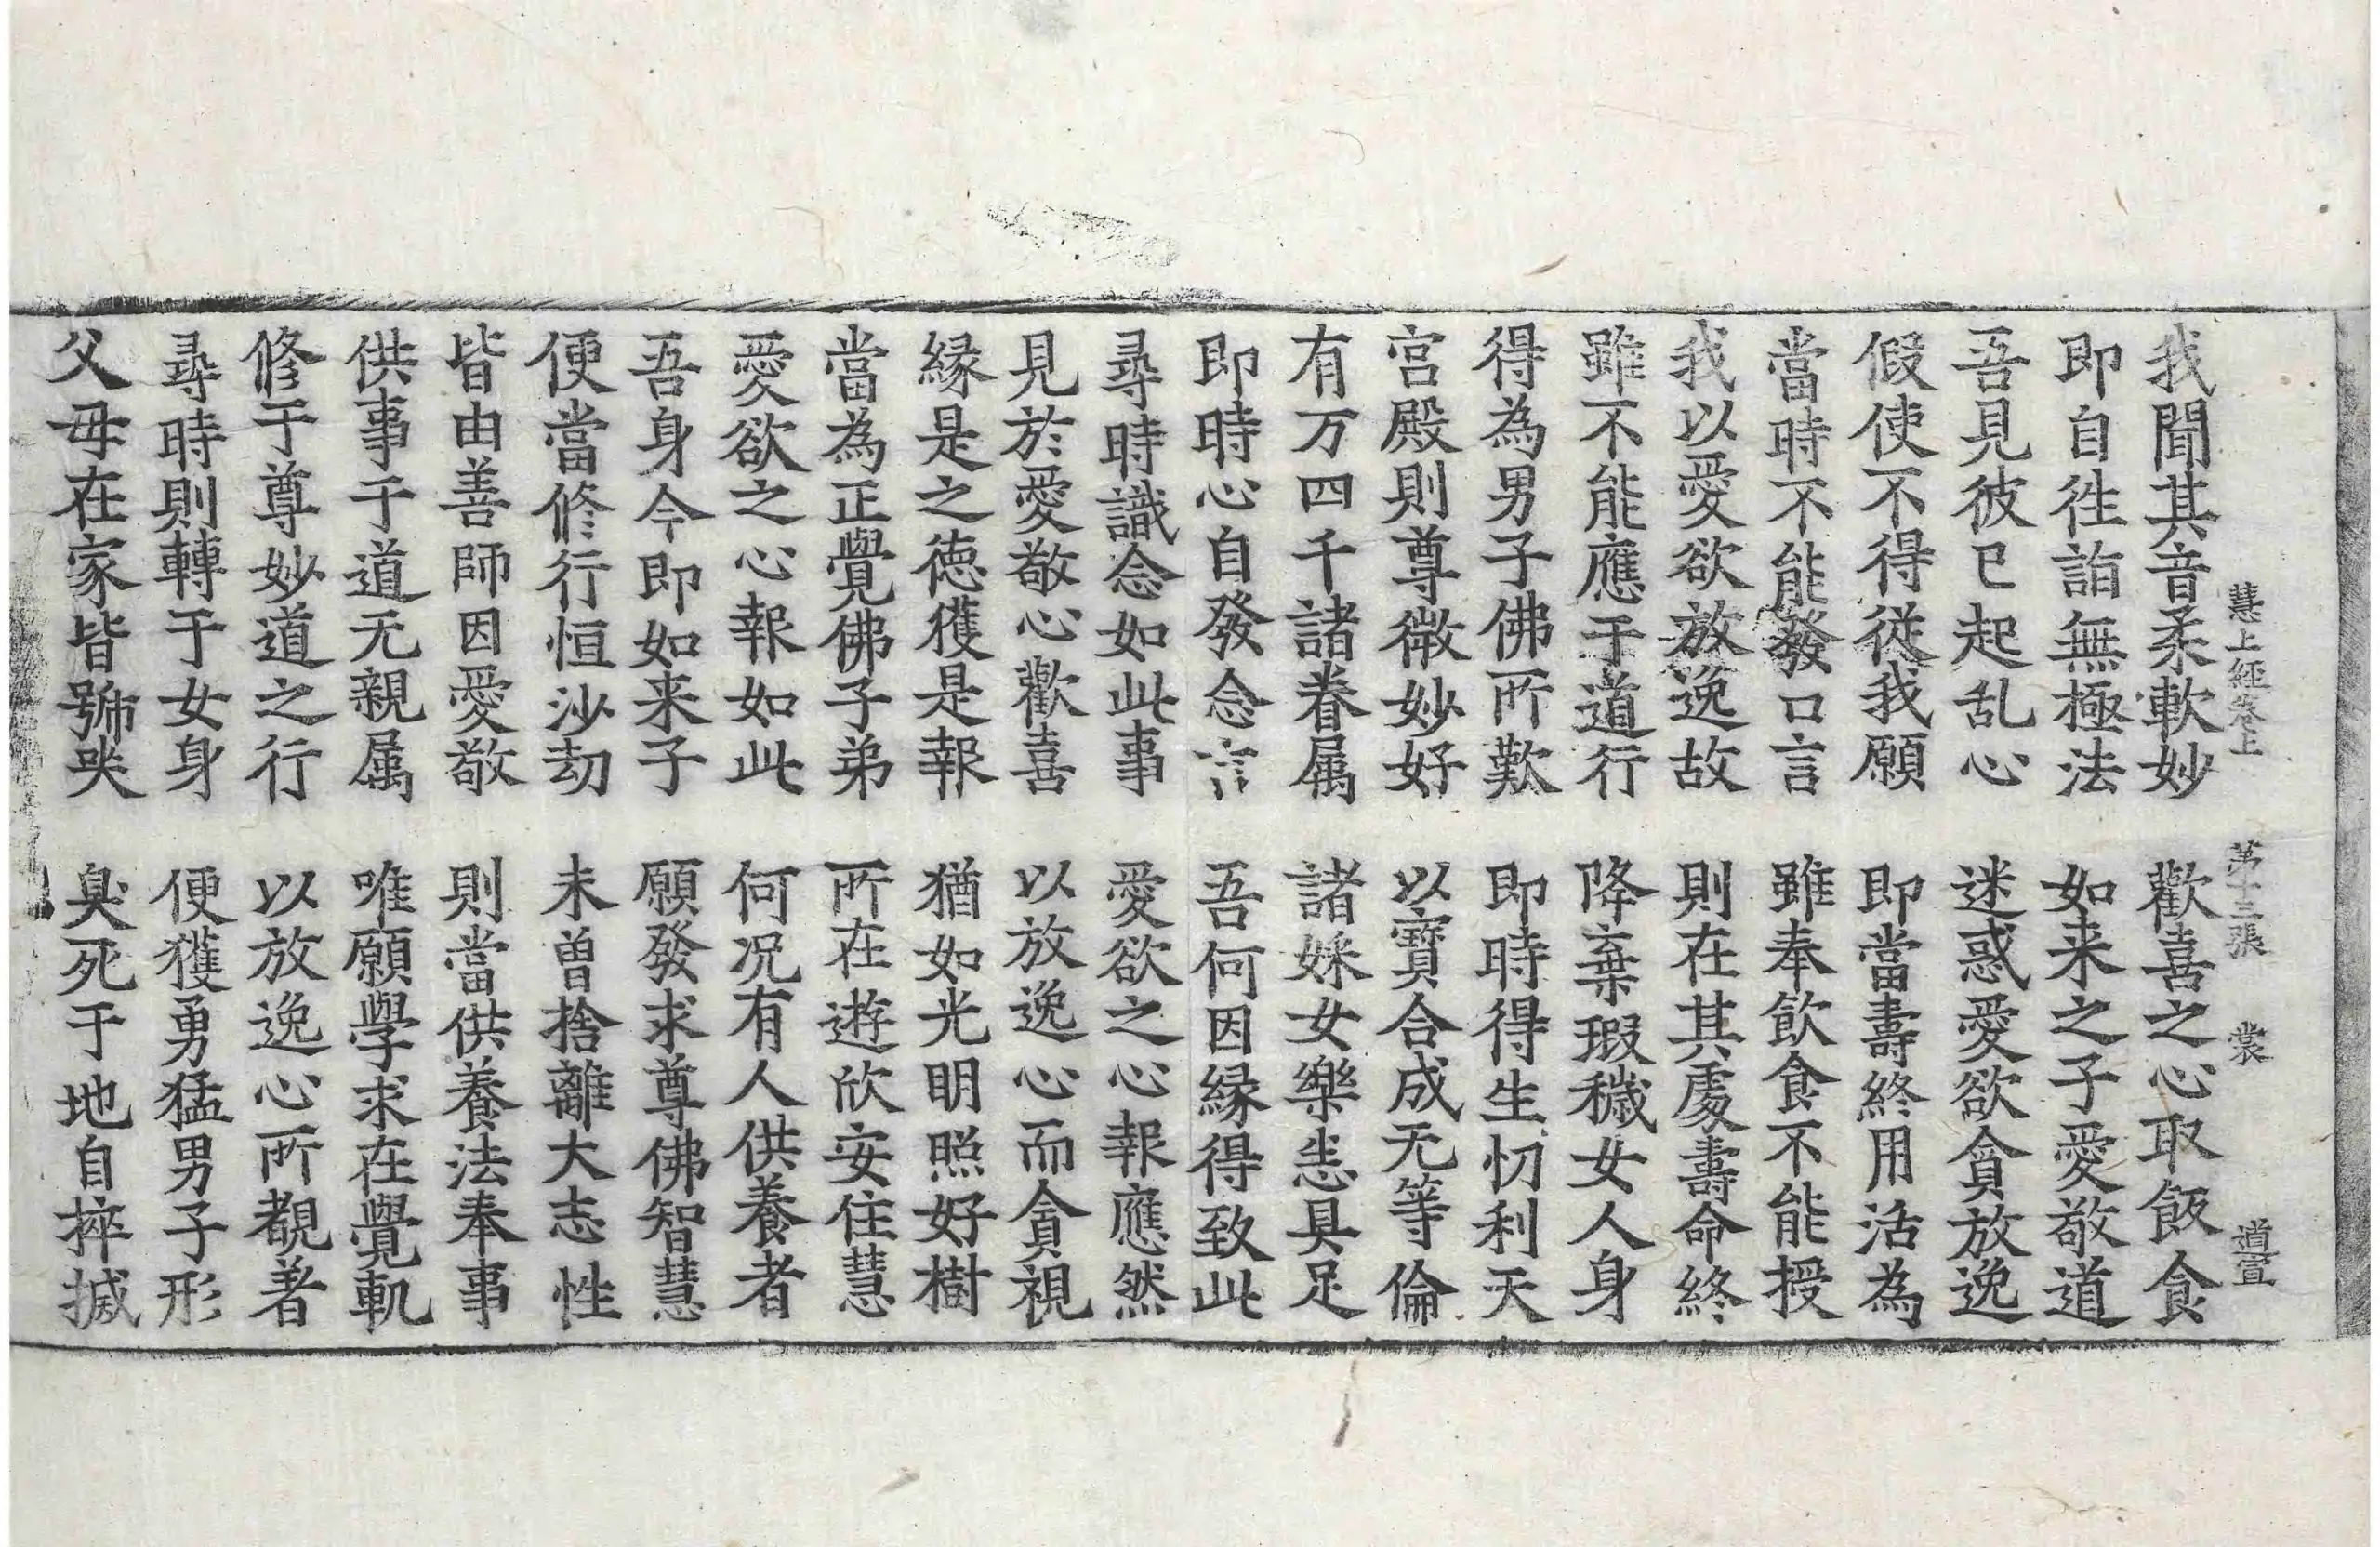 慧上經卷上　第十三張　裳　道宣
我聞其音柔軟妙　歡喜之心取飯食
即自往詣無極法　如来之子愛敬道
吾見彼已起乱心　迷惑愛欲貪放逸
假使不得從我願　即當壽終用活為
當時不能發口言　雖奉飲食不能授
我以愛欲放逸故　則在其處壽命終
雖不能應于道行　降棄瑕穢女人身
得為男子佛所歎　即時得生忉利天
宫殿則尊微妙好　以寶合成无等倫
有万四千諸眷属　諸婇女樂恚具足
即時心自發念言　吾何因縁得致此
尋時識念如此事　愛欲之心報應然
見於愛敬心歡喜　以放逸心而貪視
縁是之德獲是報　猶如光明照好樹
當為正覺佛子弟　所在遊欣安住慧
愛欲之心報如此　何况有人供養者
吾身今即如来子　願發求尊佛智慧
便當修行恒沙劫　未曽捨離大志性
皆由善師因愛敬　則當供養法奉事
供事于道无親属　唯願學求在覺軌
修于尊妙道之行　以放逸心所覩著
尋時則轉于女身　便獲勇猛男子形
父母在家皆號哭　臭死于地自摔搣